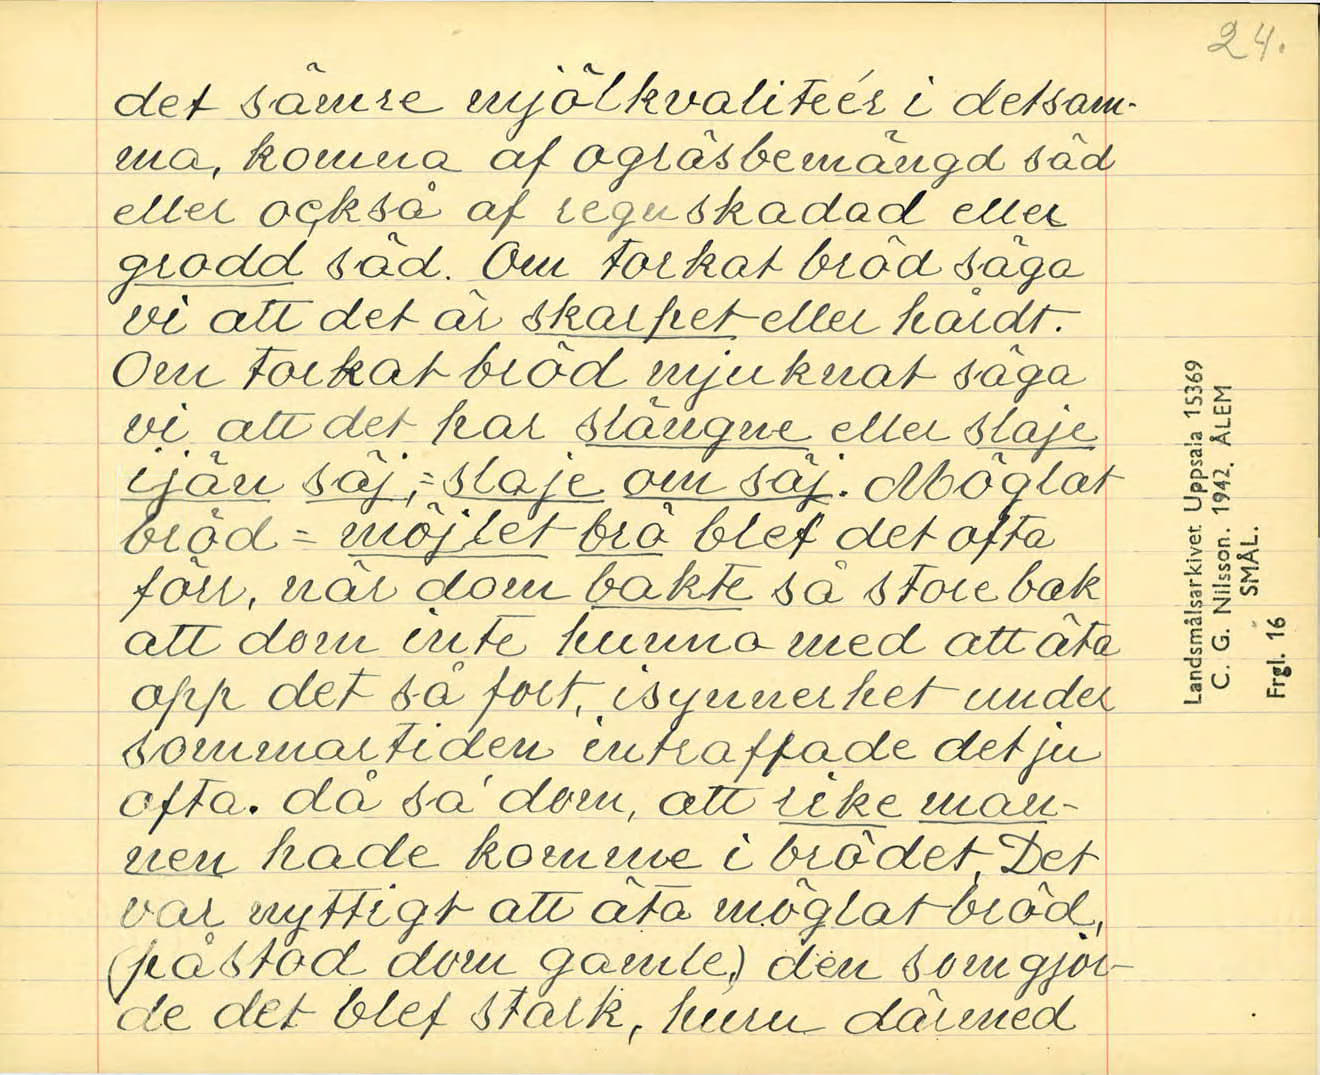 24.
det sämre mjölkvaliteér i detsam-
ma, komna af ogräsbemängd säd
eller också af regnskadad eller
grodd säd. Om torkat bröd säga
vi att det är skarpet eller hårdt.
Om torkat bröd mjuknat säga
vi att det har slängne eller slaje
ijän säj,=slaje om säj. Möglat
bröd = möjlet brö blef det ofta
förr, när dom bakte så store bak
att dom inte hunno med att äta
opp det så fort, isynnerhet under
sommartiden intraffade det ju
ofta. då sa' dom, att rike man-
nen hade komme i brödet, Det
var nyttigt att äta möglat bröd,
(påstod dom gamle,) den som gjor-
de det blef stark, huru därmed
Landsmålsarkivet Uppsala 15369
C. G. Nilsson. 1942. ÅLEM
SMÅL.
Frgl. 16